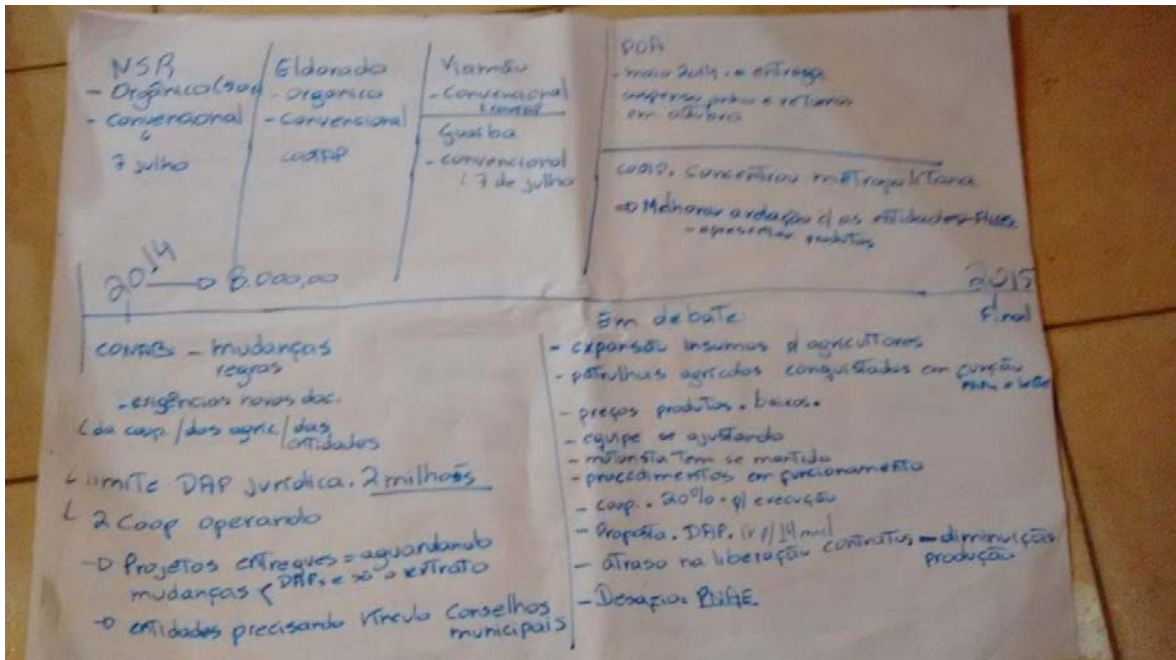 NSR
- Orgânico (
- Convencional
7 julho
Eldorado
- Orgânico
- Convencional
COOTAP
Viamão
- Convencional
Guaíba
- convencional
(7 de julho
POA
- maio 2014 . a entrega
e retorno
em outubro
coop. concentrou metropolitana
=> Melhorar a relação c/ as entidades
- apresentar produtos
2014 → 8.000,00
2015
Final
CONAB - mudanças
regras
- exigências novas doc.
(da coop./dos agric/das
entidades
L limite DAP jurídica. 2 milhões
L 2 Coop operando
→ Projetos entregues = aguardando
mudanças ( DAP, e só o extrato
→ entidades precisando vínculo Conselhos
municipais
Em debate:
- expansão insumos p/ agricultores
- patrulhas agrícolas conquistadas em função
- preços produtos . baixos.
- equipe se ajustando
- motorista tem se mantido
- procedimentos em funcionamento
- coop. . 20% . p/ execução
- Proposta. DAP. ir p/ 14 mil
- atraso na liberação contratos — diminuição
produção
- Desafio: PNAE